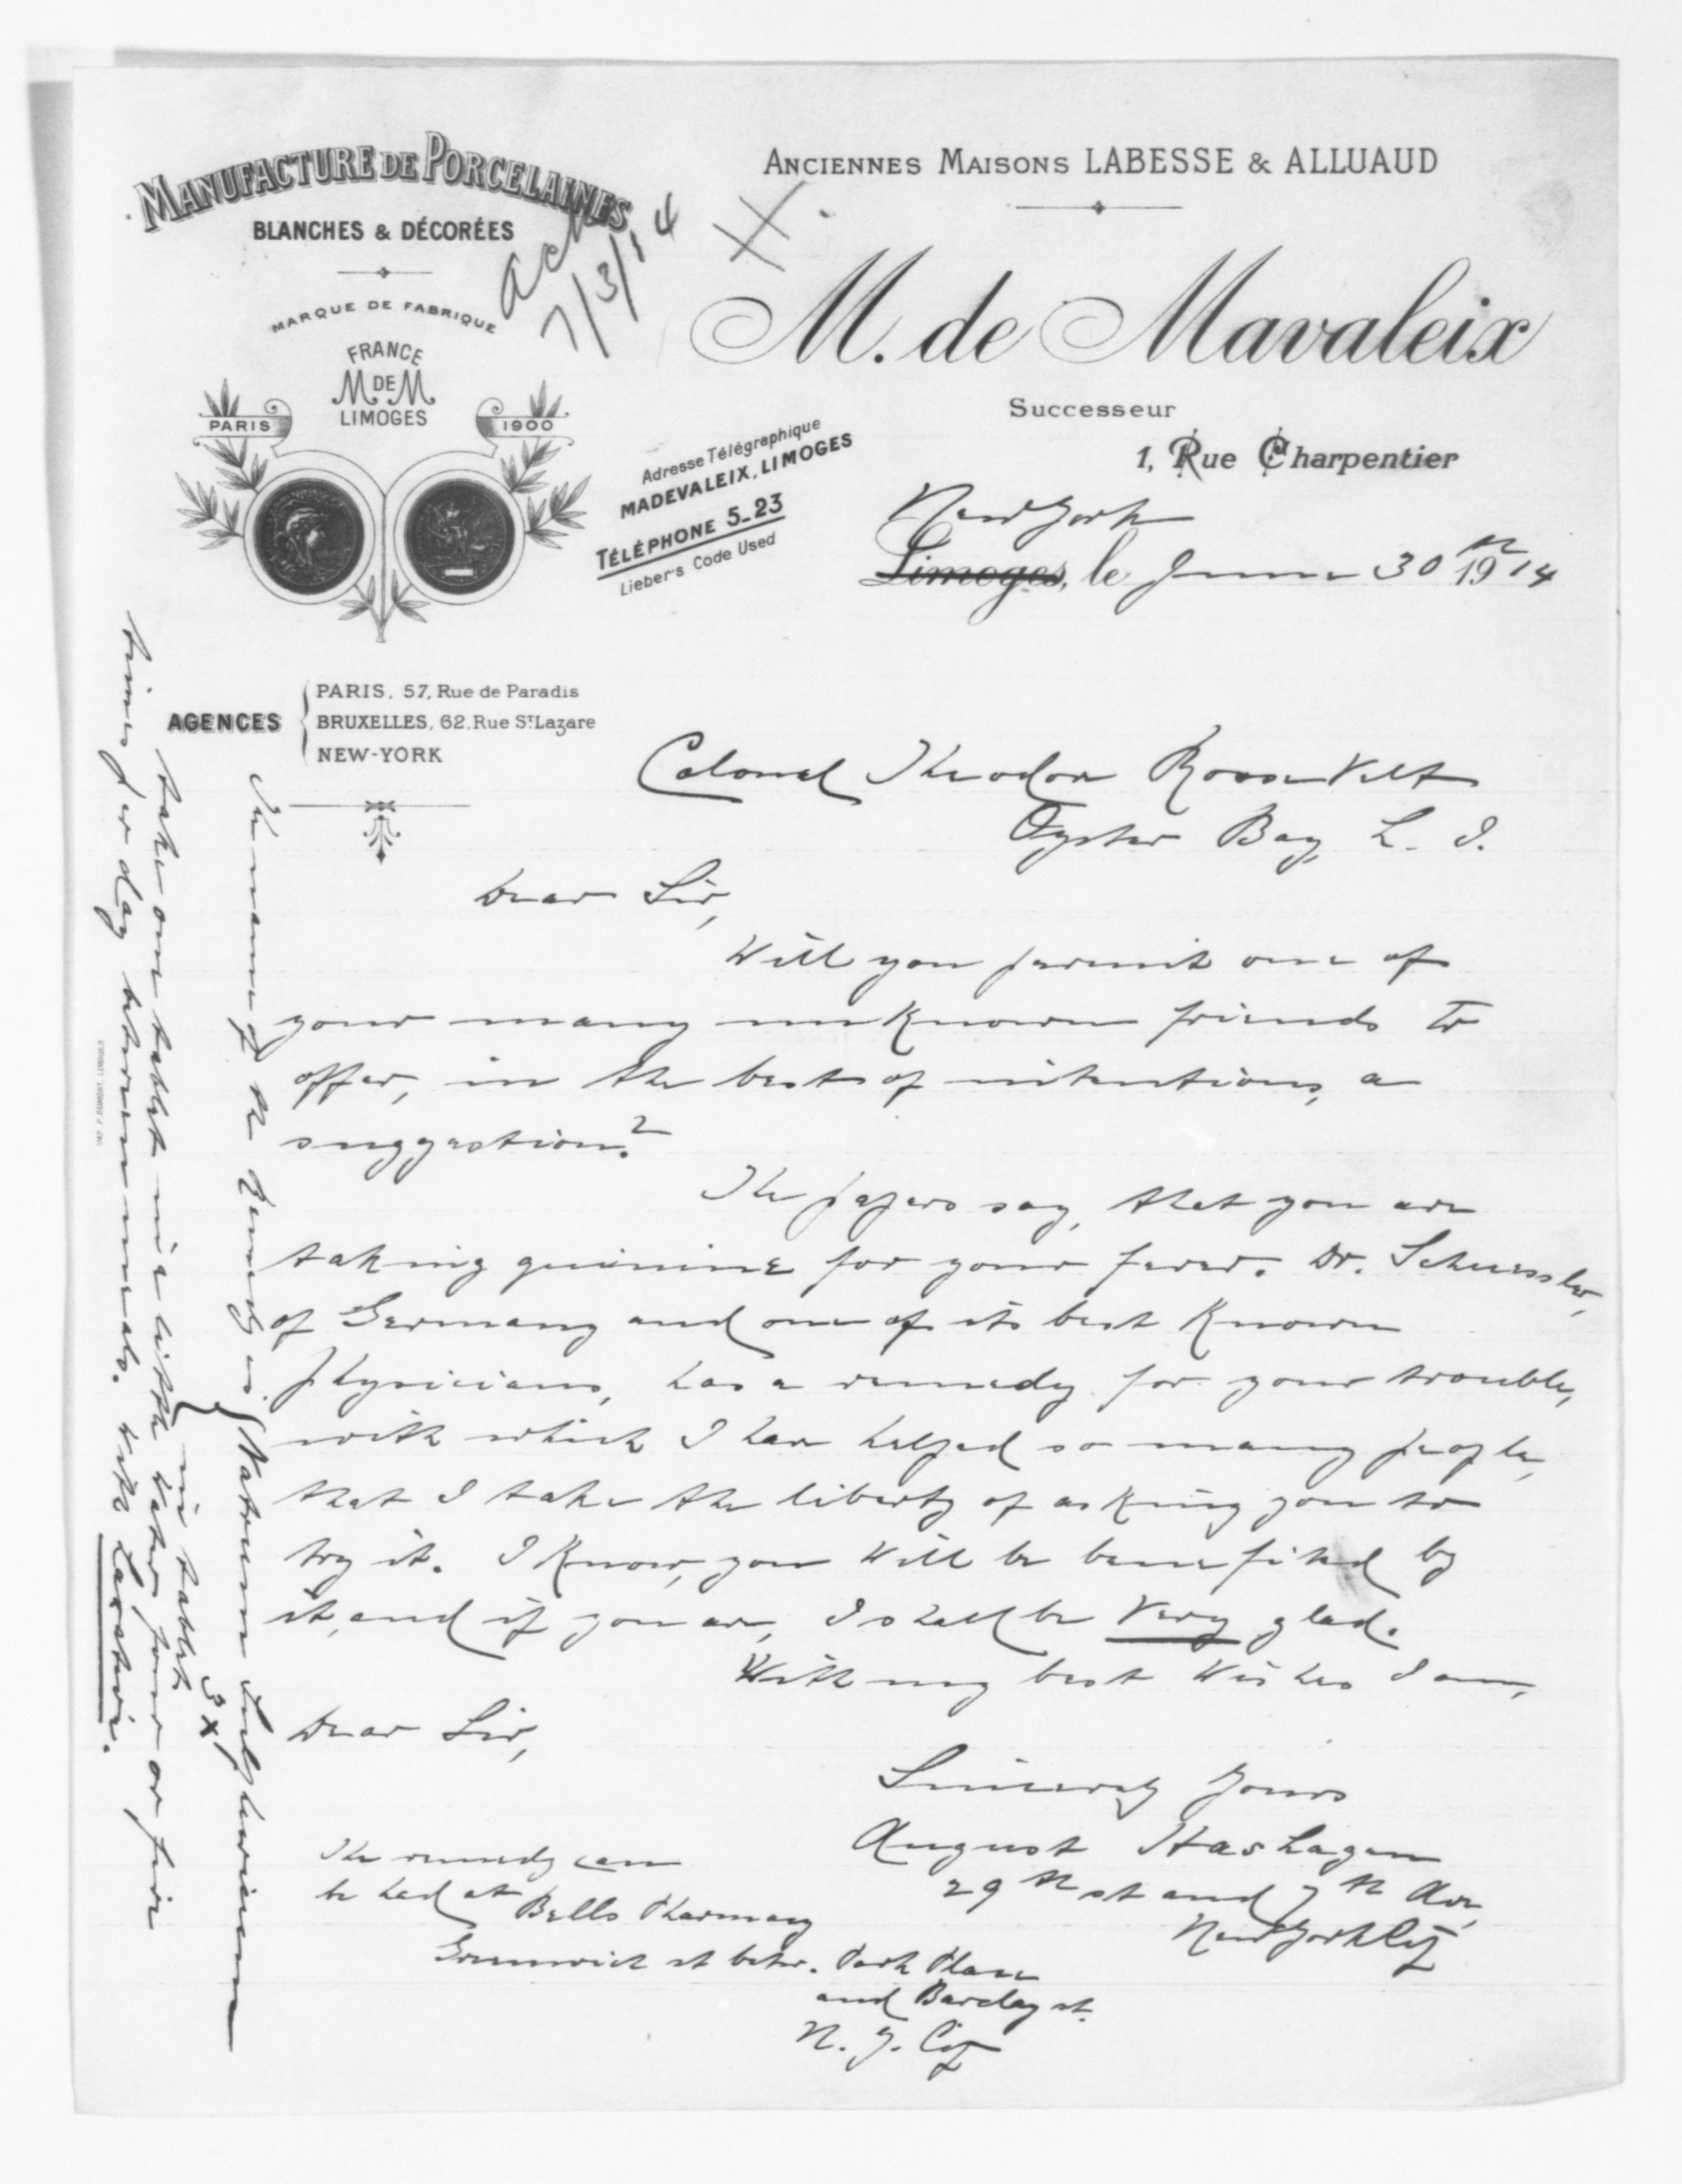 MANUFACTURE DE PORCELAINES
BLANCHES & DÉCORÉES
MARQUE DE FABRIQUE
FRANCE
M DE M
LIMOGES
PARIS
1900
ack
7/3/14
ANCIENNES MAISONS LABESSE & ALLUAUD
M. de Mavaleix
Successeur
1, Rue Charpentier
Adresse Télégraphique
MADEVALEIX, LIMOGES
TÉLÉPHONE 5_23
Lieber's Code Used
New York
Limoges, le June 30th 1914
AGENCES
PARIS, 57, Rue de Paradis
BRUXELLES, 62, Rue St Lazare
NEW-YORK
Colonel Theodor Roosevelt
Oyster Bay, L. I.
Dear Sir,
Will you permit one of
your many unknown friends to
offer, in the best of intentions, a
suggestion?
The papers say, that you are
taking quinine for your fever. Dr. Schuessler,
of Germany and one of its best known
physicians, has a remedy for your trouble,
with which I have helped so many people,
that I take the liberty of asking you to
try it. I know, you will be benefited by
it, and if you are, I shall be very glad.
With my best wishes I am,
Dear Sir,
Sincerely yours
August Hashagen
29th st and 7th Ave,
New York City
The remedy can
be had at Bells Pharmacy
Greenwich st betw. Park Place
and Barclay st.
N. Y. City
The name of the remedy is: Natrum Sulphuricum
in tablets 3x
take one tablet in a little water four or five
times per day between meals.
IMP. P. DUMONT, LIMOGES